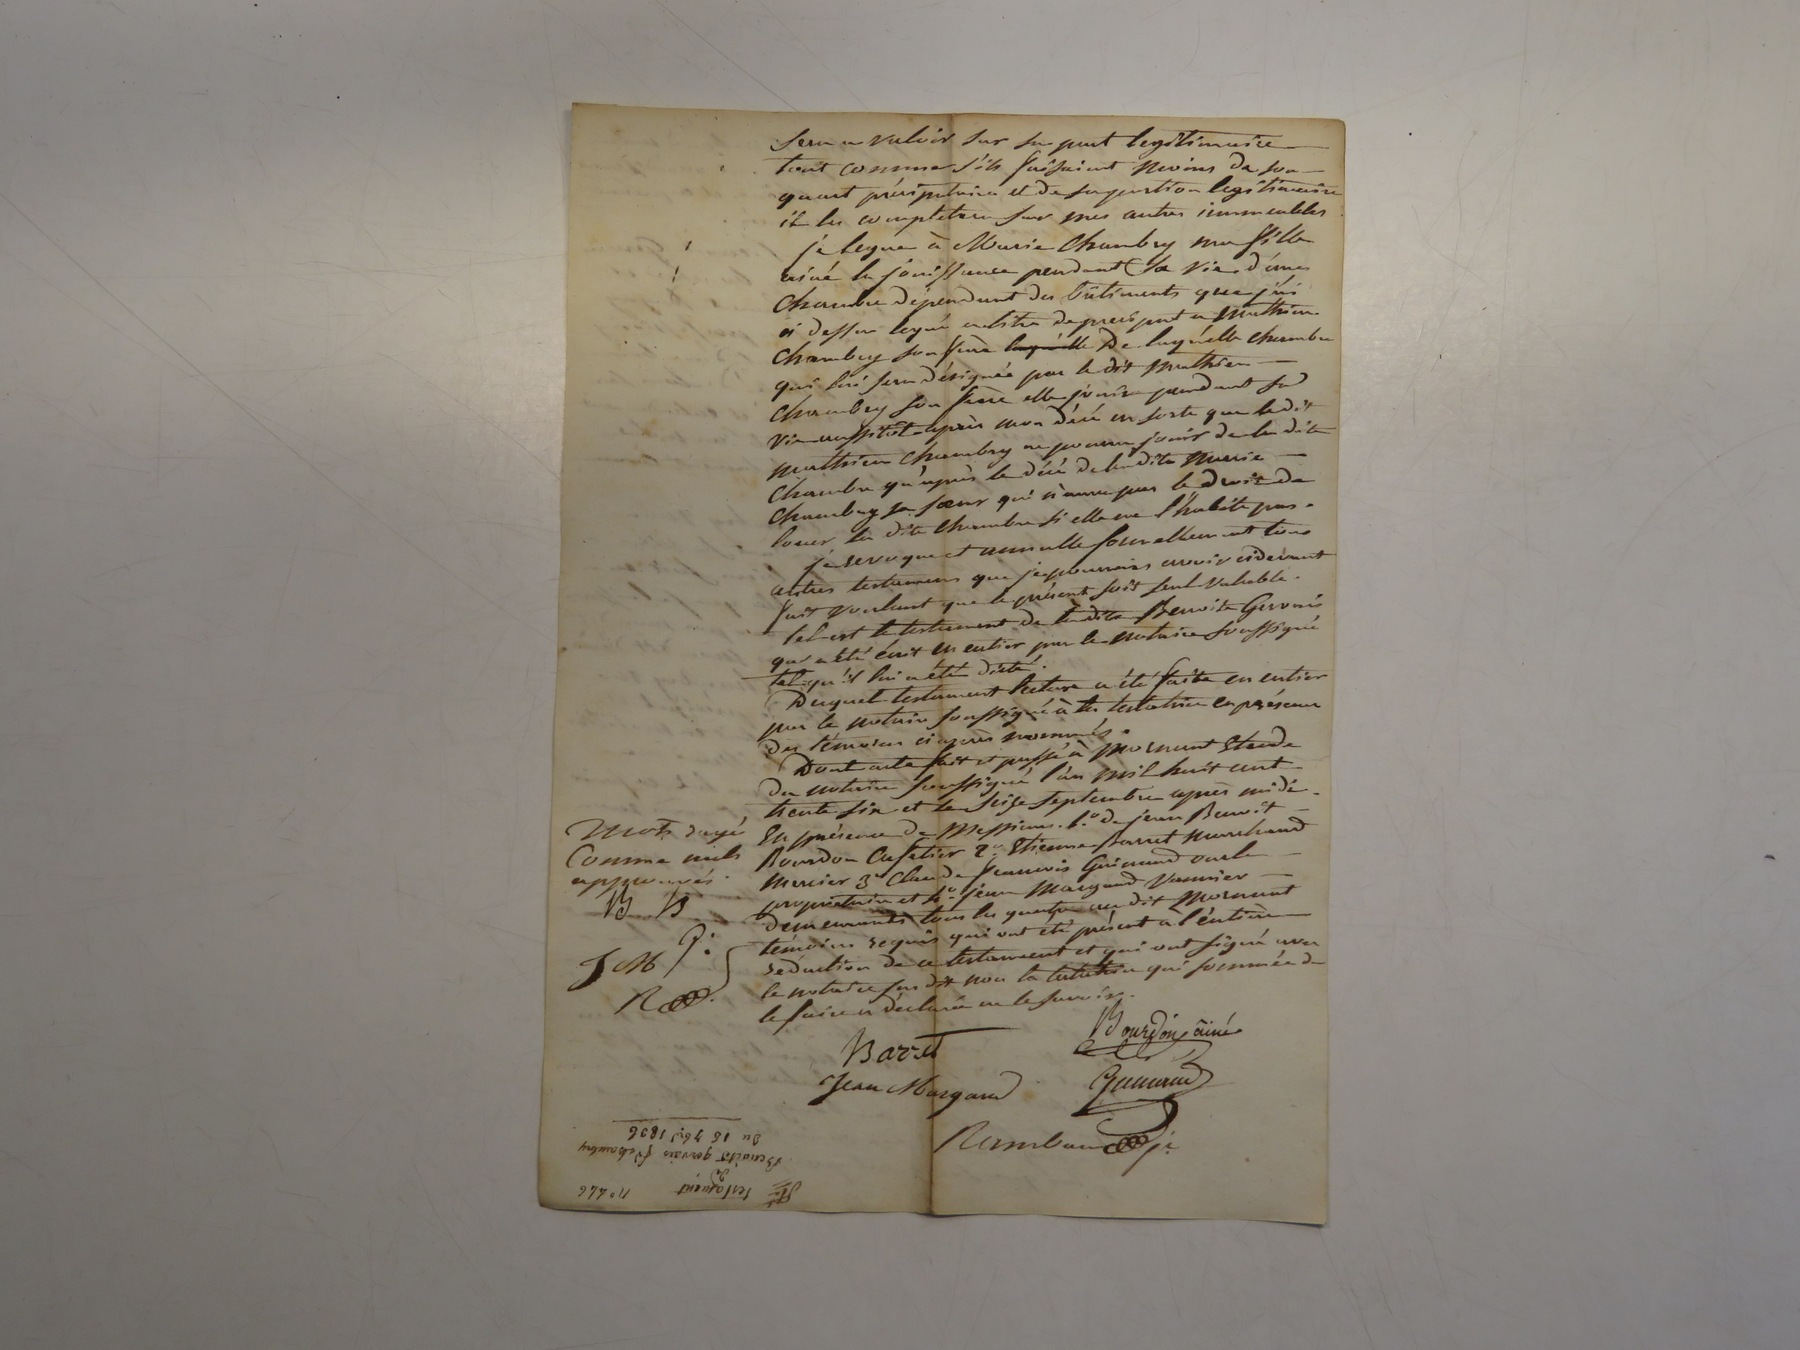 sera a valoir sur sa part legitimaire
tout comme s'ils faisaient moins de son
quart préciputaire et de sa portion legitimaire
il les completera sur mes autres immeubles
je legue à Marie Chambry ma fille
ainé la jouissance pendant sa vie d'une
chambre dépendant des bâtiments que j'ai
ci dessu legué a titre de preciput a Mathieu
Chambry son frère laquelle De laquelle chambre
qui lui sera désignée par le dit Mathieu
Chambry son frère elle jouira pendant sa
vie aussitôt après mon décé en sorte que le dit
Mathieu Chambry ne pourra jouir de la dite
chambre qu'après le décé de la dite Marie
Chambry sa sœur qui n'aura pas le droit de
louer la dite chambre si elle ne l'habite pas.
je revoque et annulle formellement tous
autres testamens que je pourrais avoir cidevant
fait voulant que le présent soit seul valable.
tel est le testament de la dite Benoite Gervais
qui a été écrit en entier par le notaire soussigné
tel qu'il lui a été dicté.
Duquel testament lecture a été faite en entier
par le notaire soussigné à la testatrice en présence
des témoins ciaprès nommés.
Dont acte fait et passé à Mornant Etude
du notaire soussigné l'an mil huit cent
trente six et le seize septembre après midi.
En présence de Messieurs. 1.° de jean Benoit
Bourdon Cafetier 2.° Etienne Barret marchand
mercier 3° Claude francois Guinand oncle
propriétaire et 4.° jean Margand vannier
demeurants tous les quatre au dit Mornant
témoins requis qui ont été présent à l'entière
rédaction de ce testament et qui ont signé avec
le notaire sus dit non la testatrice qui sommée de
le faire a déclaré ne le savoir.
Mots rayés
Comme nuls
approuvés.
B B
J M G.
R
Barret
Bourdon ainé
Jean Margand
Guinand
Rambaud j.e
N° 446
testament
de
Benoite gervais f.e chambry
Du 16 7bre 1836